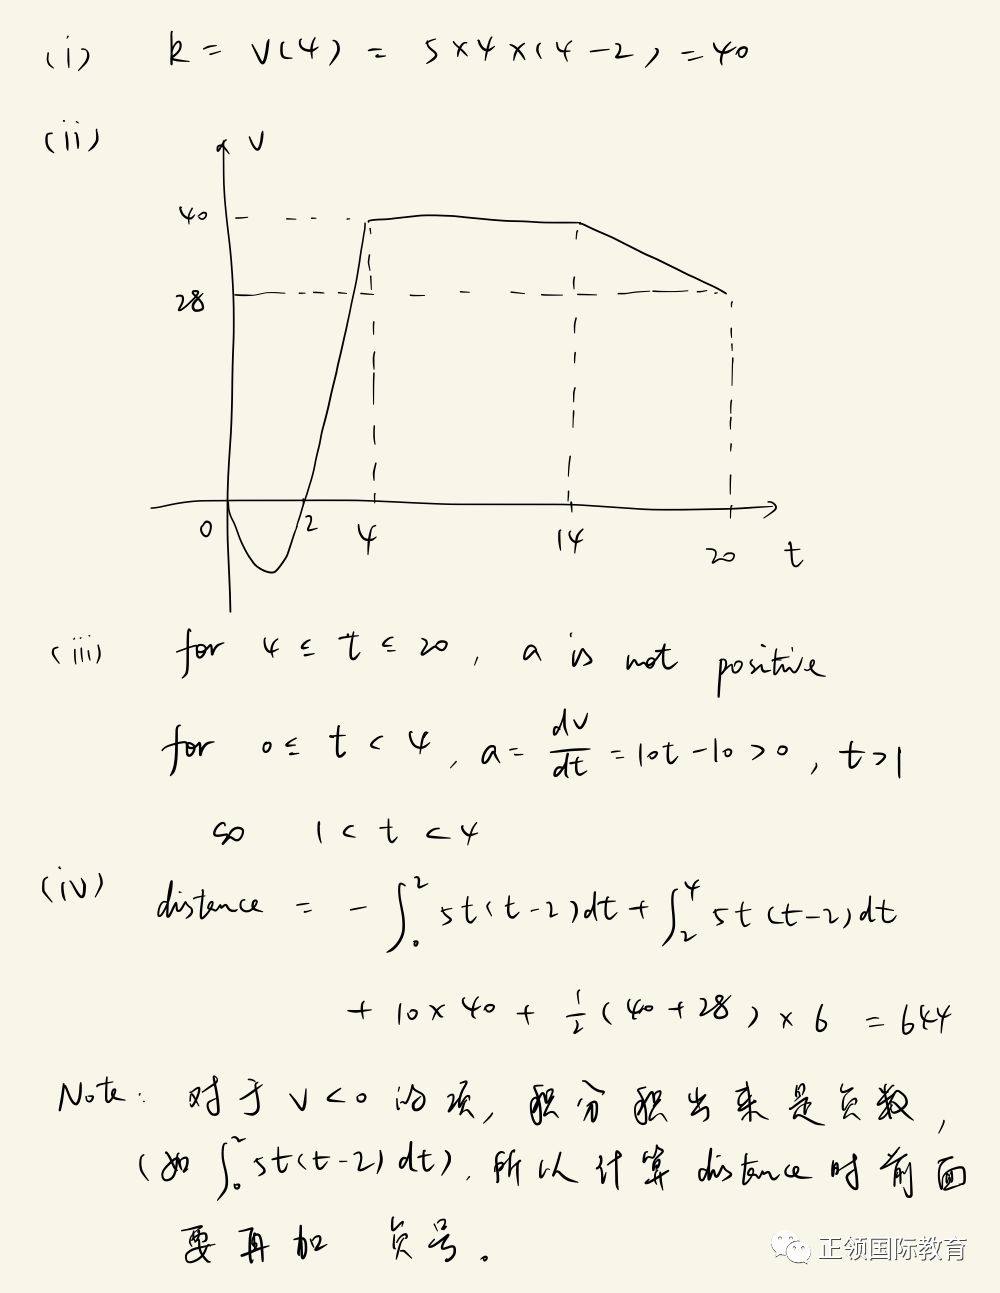 (i) k = v(4) = 5×4×(4-2) = 40
(ii)
v
40
28
0 2 4 14 20 t
(iii) for 4 ≤ t ≤ 20, a is not positive
for 0 ≤ t < 4, a = dv/dt = 10t - 10 > 0, t > 1
so 1 < t < 4
(iv) distance = - ∫₀² 5t(t-2)dt + ∫₂⁴ 5t(t-2)dt
+ 10 × 40 + 1/2 (40 + 28) × 6 = 644
Note: 对于 v < 0 的项, 积分积出来是负数,
(如 ∫₀² 5t(t-2) dt), 所以计算 distance 时前面
要再加 负号。
正领国际教育